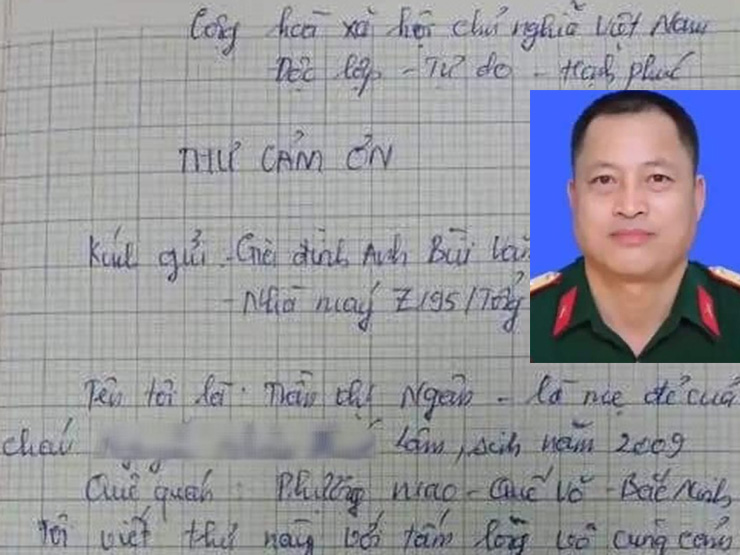 Cộng hoà xã hội chủ nghĩa Việt Nam
Độc lập - Tự do - Hạnh phúc
THƯ CẢM ƠN
Kính gửi - Gia đình Anh Bùi Văn
- Nhà máy Z195/Tổng
Tên tôi là: Trần Thị Ngân - là mẹ đẻ của
cháu Lâm, sinh năm 2009
Quê quán: Phượng mao - Quế Võ - Bắc Ninh
Tôi viết thư này với tấm lòng vô cùng cảm